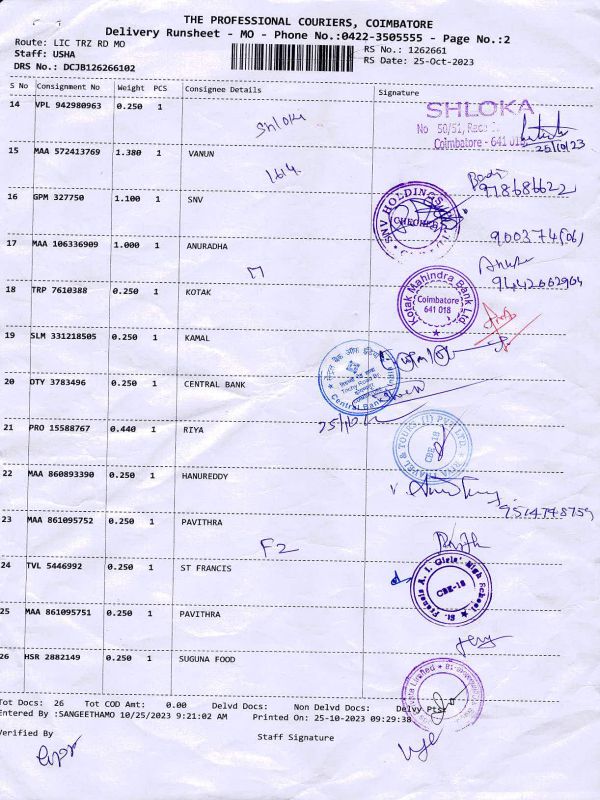 THE PROFESSIONAL COURIERS, COIMBATORE
Delivery Runsheet - MO - Phone No.:0422-3505555 - Page No.:2
Route: LIC TRZ RD MO
RS No.: 1262661
Staff: USHA
RS Date: 25-Oct-2023
DRS No.: DCJB126266102
S No Consignment No Weight PCS Consignee Details Signature
14 VPL 942980963 0.250 1
Shloka
SHLOKA
No 50/51, Race
Coimbatore - 641 018
25/10/23
15 MAA 572413769 1.380 1 VANUN
164
16 GPM 327750 1.100 1 SNV
SNV HOLDINGS
17 MAA 106336909 1.000 1 ANURADHA
18 TRP 7610388 0.250 1 KOTAK
Kotak Mahindra Bank Ltd.
Coimbatore
641 018
19 SLM 331218505 0.250 1 KAMAL
20 OTY 3783496 0.250 1 CENTRAL BANK
Central Bank
21 PRO 15588767 0.440 1 RIYA
CBE-18
22 MAA 860893390 0.250 1 HANUREDDY
9514748759
23 MAA 861095752 0.250 1 PAVITHRA
F2
24 TVL 5446992 0.250 1 ST FRANCIS
St. Francis A. I. Girls' High School,
CBE-18
25 MAA 861095751 0.250 1 PAVITHRA
26 HSR 2882149 0.250 1 SUGUNA FOOD
Tot Docs: 26 Tot COD Amt: 0.00 Delvd Docs: Non Delvd Docs: Delvy Pts:
Entered By :SANGEETHAMO 10/25/2023 9:21:02 AM Printed On: 25-10-2023 09:29:38
Verified By
Staff Signature